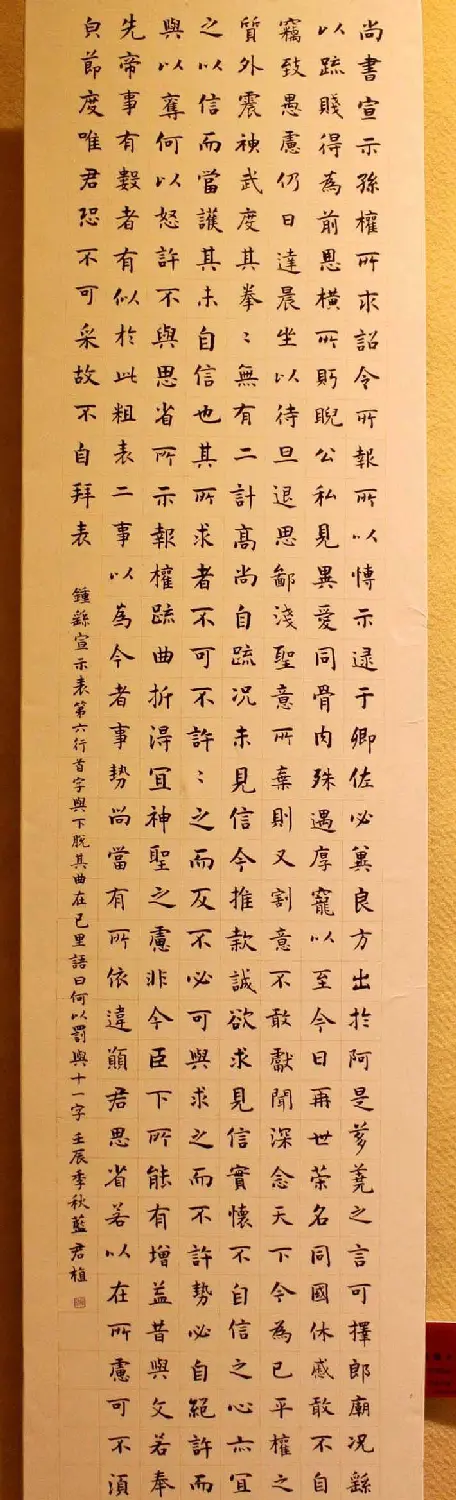 尚書宣示孫權所求詔令所報所以博示逮于卿佐必冀良方出於阿是芻蕘之言可擇郎廟況繇
以疏賤得為前恩橫所眄睨公私見異愛同骨肉殊遇厚寵以至今日再世榮名同國休慼敢不自
竊致愚慮仍日達晨坐以待旦退思鄙淺聖意所棄則又割意不敢獻聞深念天下今為已平權之
質外震神武度其拳〻無有二計高尚自疏況未見信今推款誠欲求見信實懷不自信之心亦宜
之以信而當護其未自信也其所求者不可不許〻之而反不必可與求之而不許勢必自絕許而
與以奪何以怒許不與思省所示報權疏曲折得宜神聖之慮非今臣下所能有增益昔與文若奉
先帝事有數者有似於此粗表二事以為今者事勢尚當有所依違願君思省若以在所慮可不須
貟節度唯君恐不可采故不自拜表
鍾繇宣示表第六行首字與下脫其曲在己里語曰何以罰與十一字 壬辰季秋藍君植